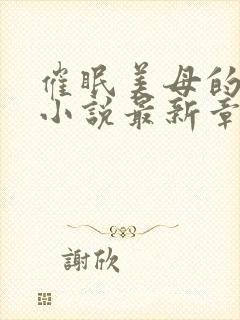 催眠美母的
小说最新章
謝欣